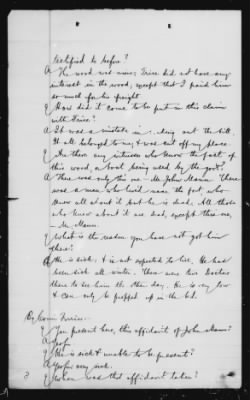 testified to before?
A The wood was mine; Trice did not have any
interest in the wood, except that I paid him
so much for his freight.
Q How did it come to be put in this claim
with Trice?
A It was a mistake in making out the bill.
It all belonged to me, & was cut off my place.
Q Are there any witnesses who know the fact of
this wood, a boat being used by the gov't?
A There was only this one - Mr. John Mann. There
was a man who lived near the fort, who
knew all about it but he is dead. All those
who knew about it are dead, except this one,
Mr. Mann.
Q What is the reason you have not got him
there?
A He is sick, & is not expected to live. He has
been sick all winter. There were two Doctors
there to see him the other day. He is very low
& can only be propped up in the bed.
By Com
Q You present here, this affidavit of John Mann?
A Yes sir.
Q He is sick & unable to be present?
A Yes sir, very sick.
Q When was that affidavit taken?